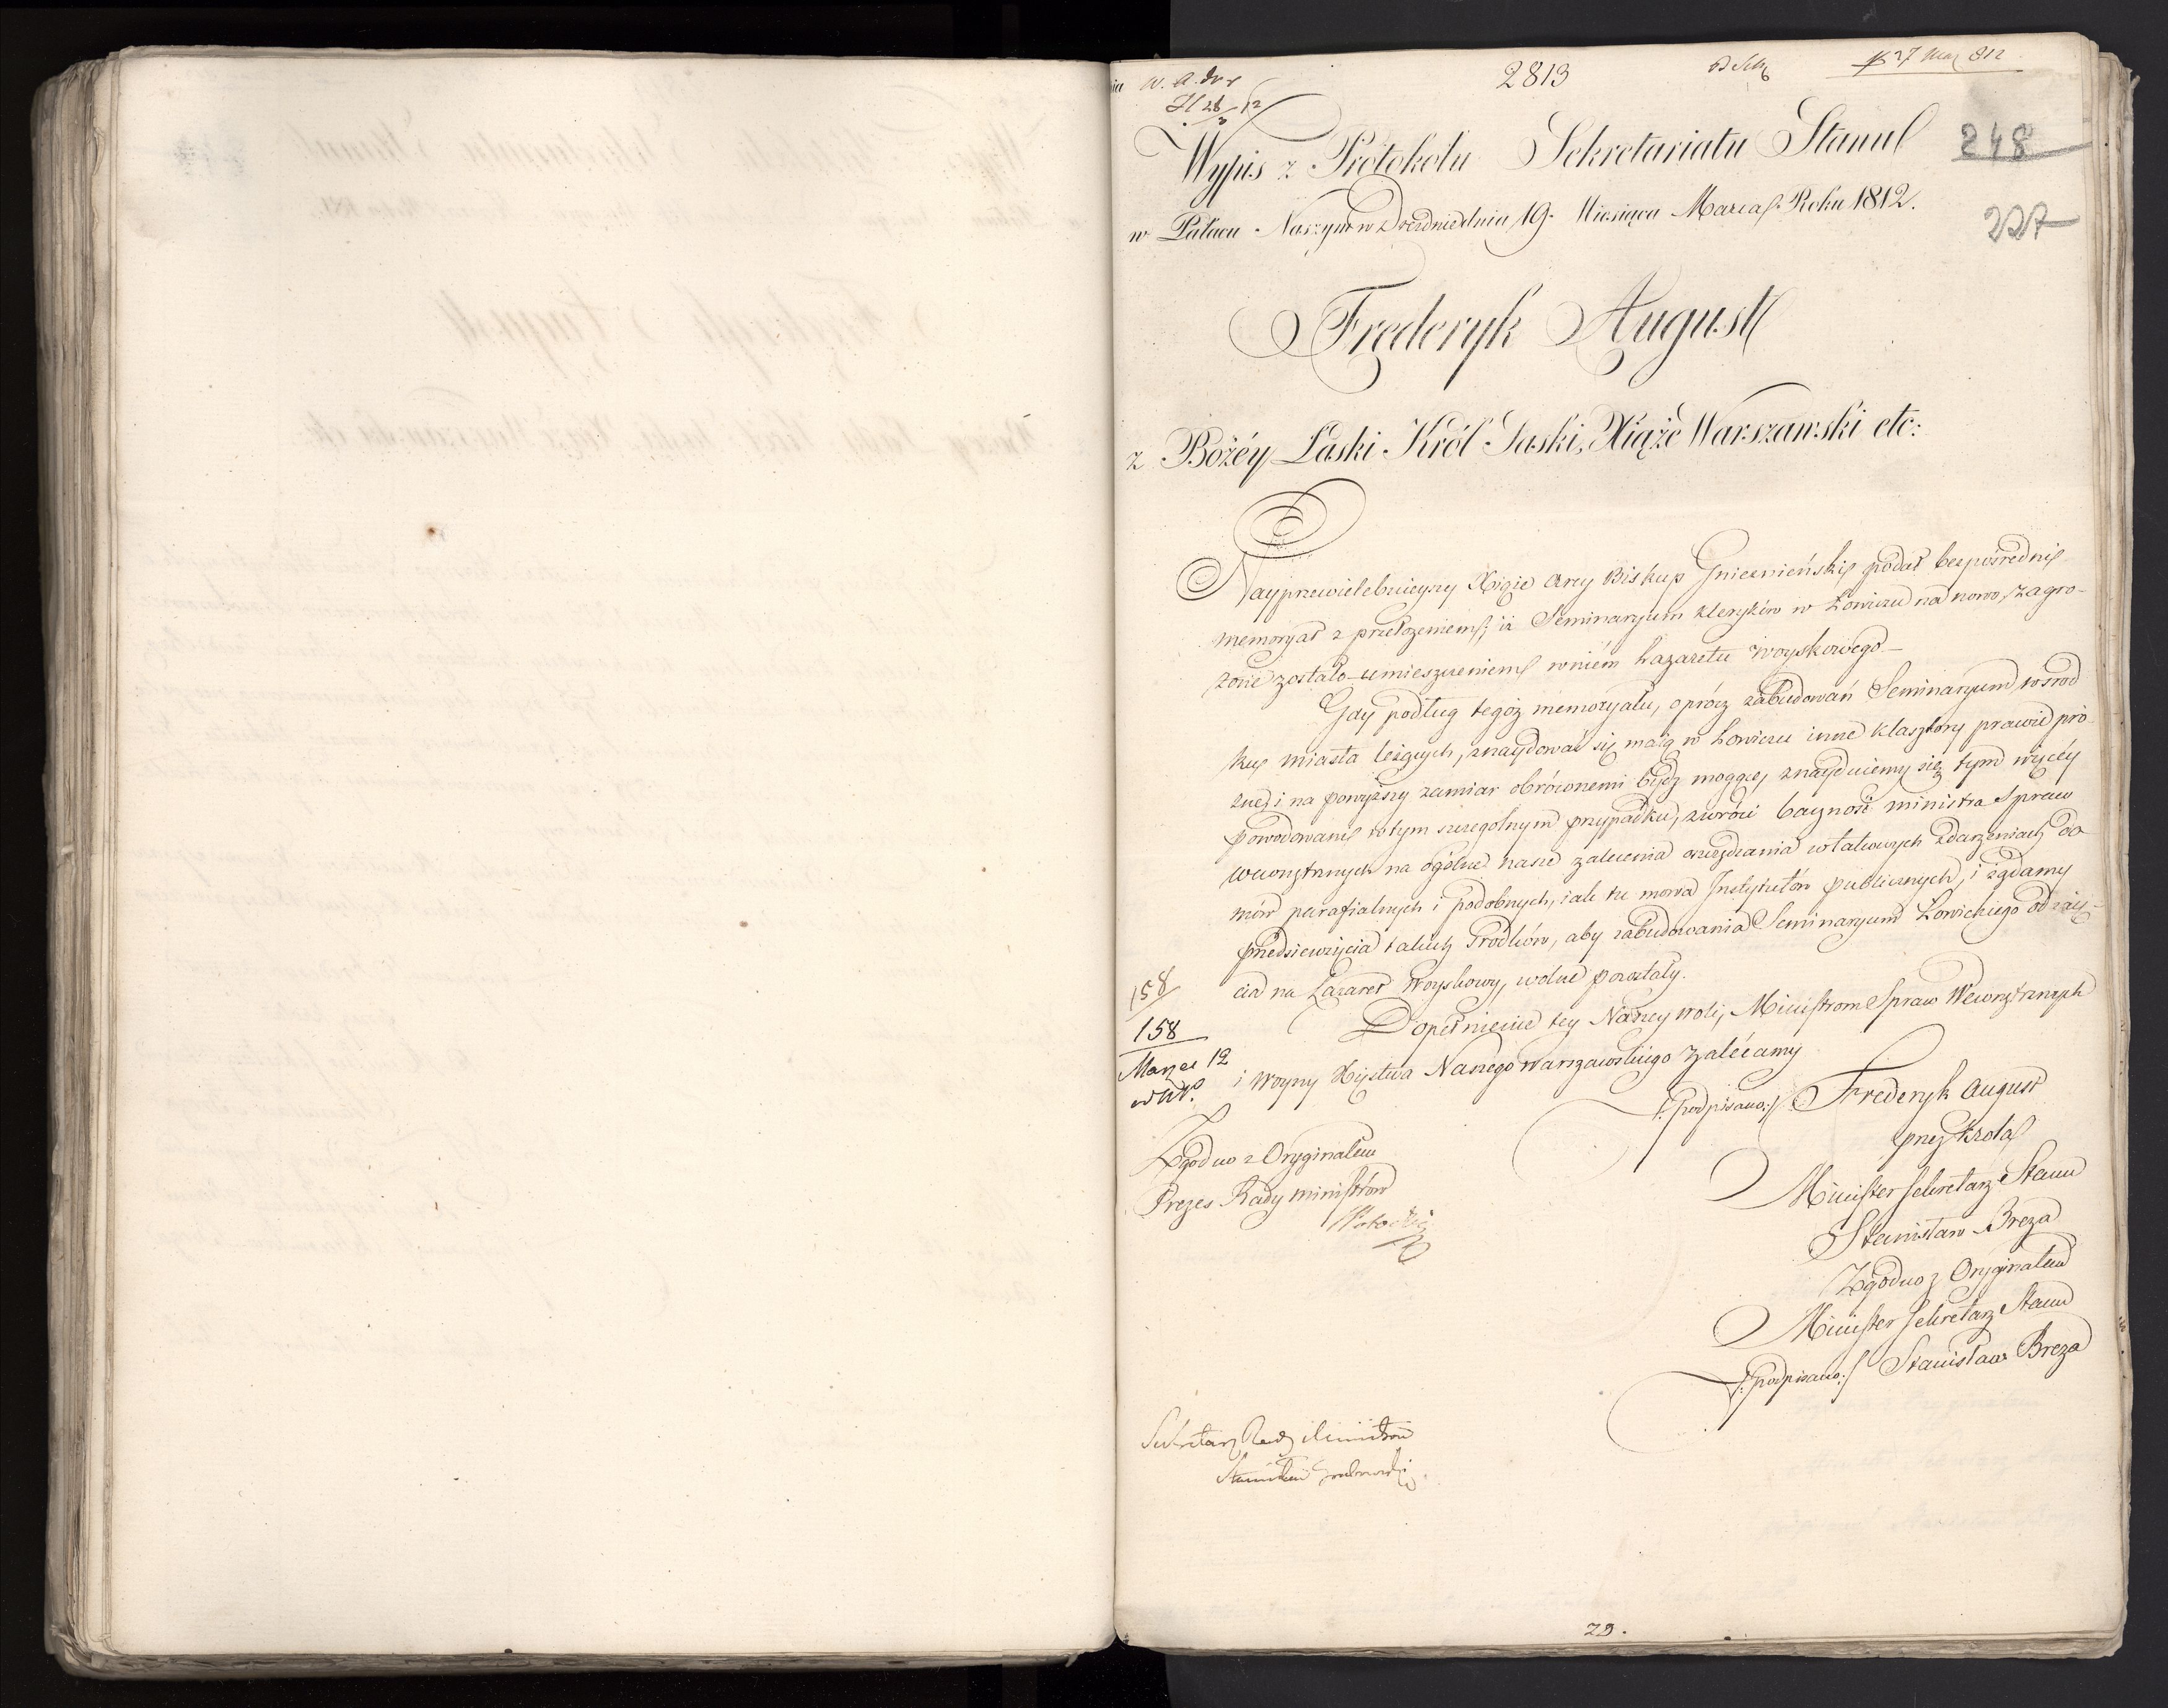 2813
27 Mar 812
28/3 12
Wypis z Protokołu Sekretariatu Stanu
248
w Pałacu Naszym w Dreznie dnia 19. Miesiąca Marca Roku 1812.
227
Frederyk August
z Bożéy Łaski Król Saski, Xiąże Warszawski etc:
Nayprzewielebnieyszy Xiąże Arcy Biskup Gnieznieński podał bezpośrednie
memoryał z przełożeniem, iż Seminaryum kleryków w Łowiczu na nowo zagro-
żone zostało umieszczeniem w niém Lazaretu woyskowego.—
Gdy podług tegoż memoryału, oprócz zabudowań Seminaryum wśrod
ku miasta leżących, znaydować się maią w Łowiczu inne klasztory prawie pró-
żne, i na powyższy zamiar obróconemi bydź mogące, znayduiemy się tym więcéy
powodowani w tym szczegolnym przypadku, zwrócić baczność ministra Spraw
wewnętrznych na ogólne nasze zalecenia oszczędzania w takowych zdarzeniach do-
mów parafialnych i podobnych, iak tu mowa Instytutów publicznych, i żądamy
przedsięwzięcia takich środków, aby zabudowania Seminaryum Łowickiego od zaię-
cia na Lazaret Woyskowy, wolne pozostały.
158
Dopełnienie tey Naszey woli, Ministrom Spraw Wewnętrznych
158
i Woyny Xięstwa Naszego Warszawskiego zalecamy
Marzec 12
/:podpisano:/ Frederyk August
przez Króla
Zgodno z Oryginałem
Minister Sekretarz Stanu
Prezes Rady Ministrów
Stanisław Breza
Potocki
Zgodno z Oryginałem
Minister Sekretarz Stanu
/:podpisano:/ Stanisław Breza
Sekretarz Rady Ministrów
Stanisław Grabowski
29.